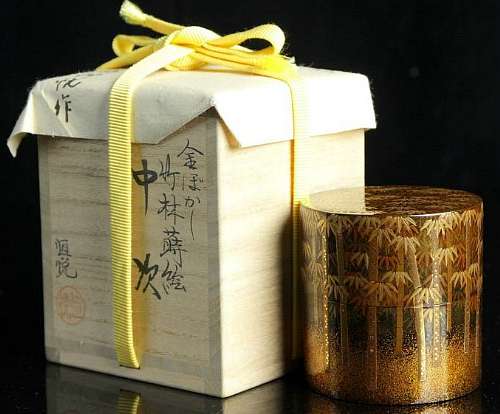 金ぼかし
竹林蒔絵
中次
作